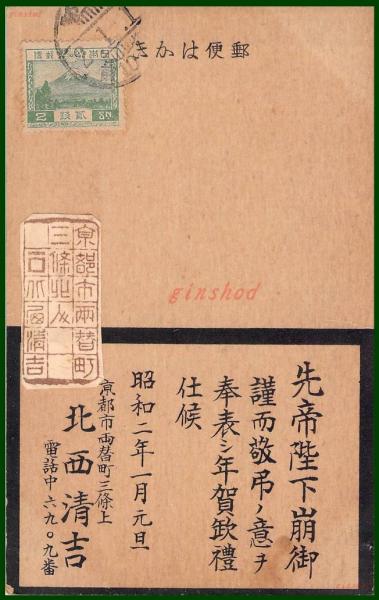 ginshod
郵便はかき
日本帝國郵便
2 貳錢 Sn.
京都市両替町
三條北入
北西清吉
ginshod
先帝陛下崩御
謹而敬弔ノ意ヲ
奉表シ年賀欽禮
仕候
昭和二年一月元旦
京都市両替町三條上
北西清吉
電話中六九〇九番